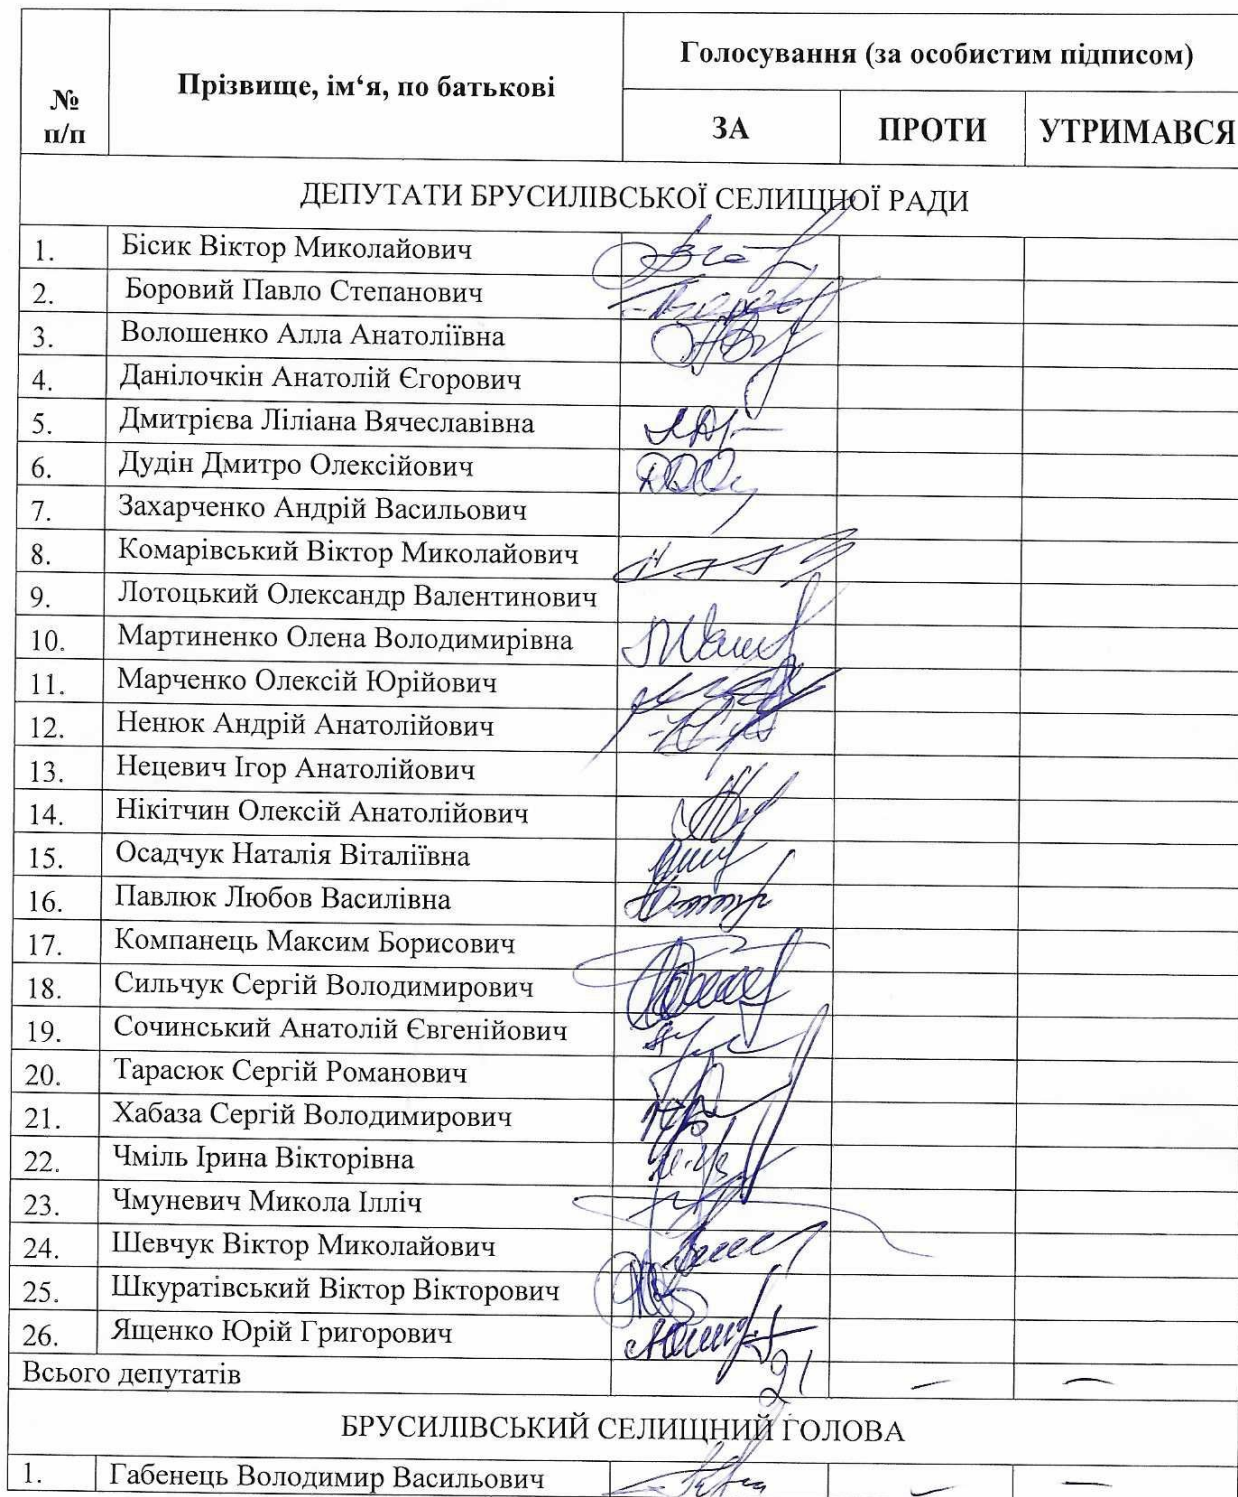 № п/п
Прізвище, ім‘я, по батькові
Голосування (за особистим підписом)
ЗА
ПРОТИ
УТРИМАВСЯ
ДЕПУТАТИ БРУСИЛІВСЬКОЇ СЕЛИЩНОЇ РАДИ
1. Бісик Віктор Миколайович
2. Боровий Павло Степанович
3. Волошенко Алла Анатоліївна
4. Данілочкін Анатолій Єгорович
5. Дмитрієва Ліліана Вячеславівна
6. Дудін Дмитро Олексійович
7. Захарченко Андрій Васильович
8. Комарівський Віктор Миколайович
9. Лотоцький Олександр Валентинович
10. Мартиненко Олена Володимирівна
11. Марченко Олексій Юрійович
12. Ненюк Андрій Анатолійович
13. Нецевич Ігор Анатолійович
14. Нікітчин Олексій Анатолійович
15. Осадчук Наталія Віталіївна
16. Павлюк Любов Василівна
17. Компанець Максим Борисович
18. Сильчук Сергій Володимирович
19. Сочинський Анатолій Євгенійович
20. Тарасюк Сергій Романович
21. Хабаза Сергій Володимирович
22. Чміль Ірина Вікторівна
23. Чмуневич Микола Ілліч
24. Шевчук Віктор Миколайович
25. Шкуратівський Віктор Вікторович
26. Ященко Юрій Григорович
Всього депутатів 21 – –
БРУСИЛІВСЬКИЙ СЕЛИЩНИЙ ГОЛОВА
1. Габенець Володимир Васильович – –